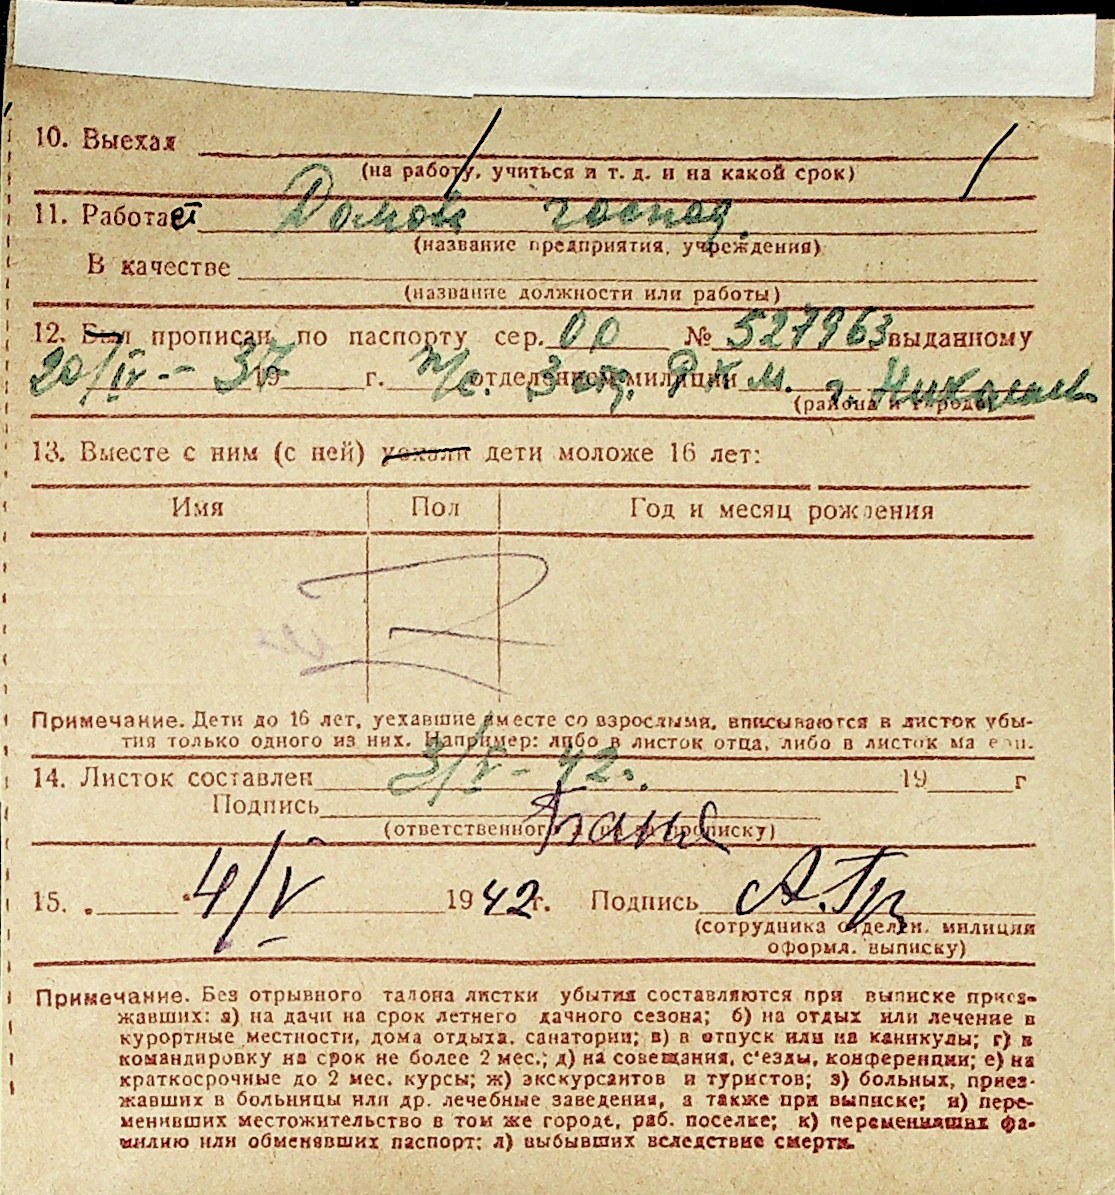 10. Выехал
(на работу, учиться и т. д. и на какой срок)
11. Работает Домой господ.
(название предприятия, учреждения)
В качестве
(название должности или работы)
12. Был прописан по паспорту сер. 00 № 527963 выданному
20/IV -- 37 19 г. отделением милиции 3 отд. Р К М. г. Николаев
(района и города)
13. Вместе с ним (с ней) уехали дети моложе 16 лет:
Имя Пол Год и месяц рождения
Примечание. Дети до 16 лет, уехавшие вместе со взрослыми, вписываются в листок убы-
тия только одного из них. Например: либо в листок отца, либо в листок матери.
14. Листок составлен 3/V - 42. 19 г
Подпись
(ответственного за прописку)
15. 4/V 1942 г. Подпись А. Гр
(сотрудника отделен. милиции
оформл. выписку)
Примечание. Без отрывного талона листки убытия составляются при выписке приез-
жавших: а) на дачи на срок летнего дачного сезона; б) на отдых или лечение в
курортные местности, дома отдыха, санатории; в) в отпуск или на каникулы; г) в
командировку на срок не более 2 мес.; д) на совещания, с'езды, конференции; е) на
краткосрочные до 2 мес. курсы; ж) экскурсантов и туристов; з) больных, приез-
жавших в больницы или др. лечебные заведения, а также при выписке; и) пере-
менивших местожительство в том же городе, раб. поселке; к) переменивших фа-
милию или обменявших паспорт; л) выбывших вследствие смерти.